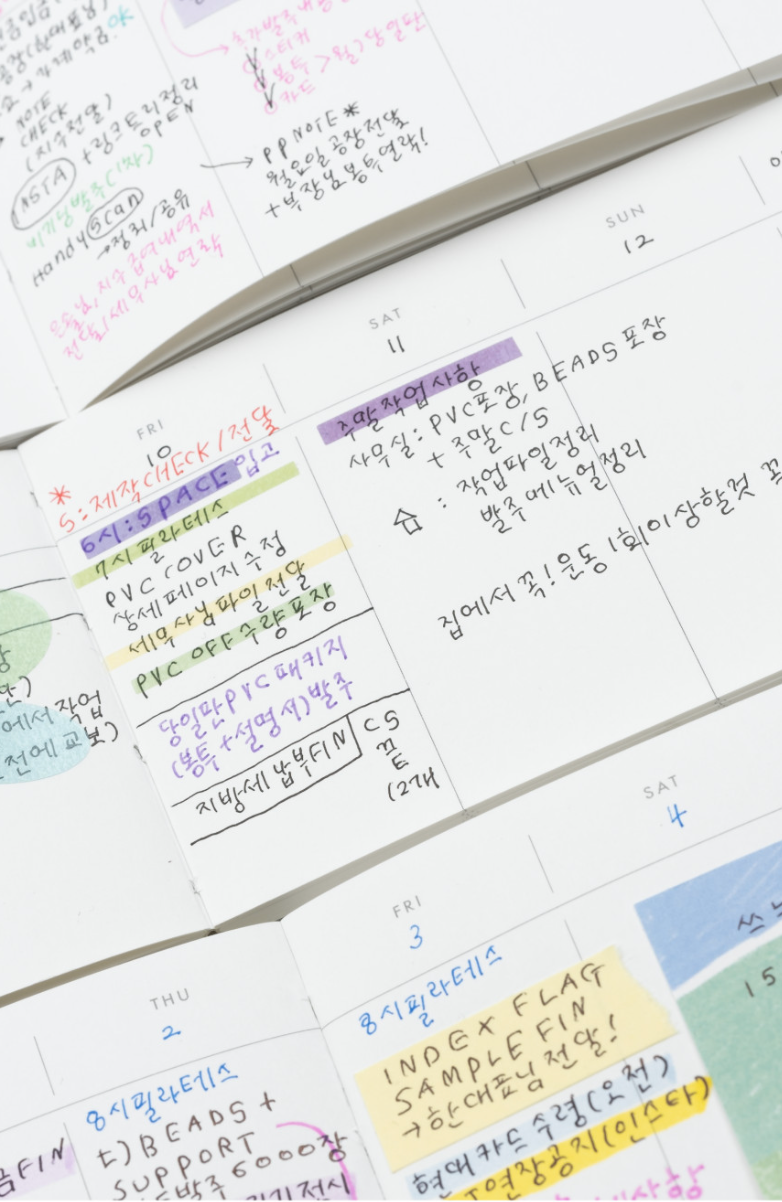 NOTE
CHECK
(지수전달)
+링크트리정리
OPEN
INSTA
비기닝발주(1차)
Handy scan
→정리/공유
스티커
봉투 > 월) 당일단
카드
PP NOTE*
월요일 공장전달
+부장님봉투연락!
SUN
12
SAT
11
주말작업사항
사무실: PVC포장, BEADS 포장
+ 주말 C/S
: 작업파일정리
발주메뉴얼정리
집에서 꼭! 운동 1회이상할것
FRI
10
*
5: 제작CHECK/전달
6시: SPACE 입고
7시 필라테스
PVC COVER
상세페이지수정
세무사님파일전달
PVC OFF수량포장
당일판PVC패키지
(봉투+설명서)발주
지방세 납부FIN
CS
(2개
에서작업
전에교보)
SAT
4
15
FRI
3
8시필라테스
INDEX FLAG
SAMPLE FIN
→한대표님전달!
현대카드수령(오전)
연장공지(인스타)
THU
2
8시필라테스
t) BEADS +
SUPPORT
발주6000장
FIN